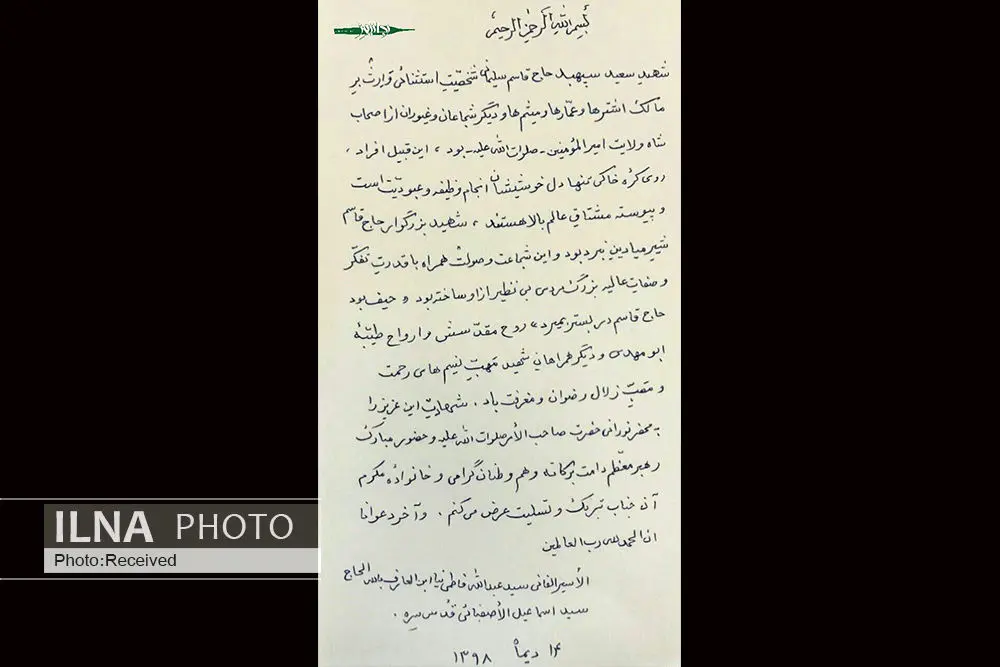 بسم الله الرحمن الرحیم
شهید سعید سپهبد حاج قاسم سلیمانی شخصیّتِ استثنائی و ارث‌برِ
مالک اشترها و عمّارها و میثم‌ها و دیگر شجاعان و غیوران از اصحاب
شاه ولایت امیرالمؤمنین ـ صلوات الله علیه ـ بود ، این قبیل افراد ،
روی کرّه خاکی تنها دل خوشیشان انجام وظیفه و عبودیّت است
و پیوسته مشتاقِ عالم بالا هستند ، شهید بزرگوار حاج قاسم
شیر میادینِ نبرد بود و این شجاعت و صولت همراه با قدرتِ تفکّر
و صفات عالیه بزرگ‌مردی بی نظیر از او ساخته بود « حیف بود
حاج قاسم در بستر بمیرد » روح مقدّسش و ارواح طیّبهٔ
ابو مهدی و دیگر همراهانِ شهید مَهبِّ نسیم های رحمت
و مَصَبِّ زلال رضوان و مغفرت باد . شهادت این عزیز را
به محضر نورانی حضرت صاحب الأمر صلوات الله علیه و حضور مبارک
رهبر معظّم دامت برکاته و هم وطنان گرامی و خانواده مکرم
آن جناب تبریک و تسلیت عرض می‌کنم . و آخر دعوانا
ان الحمد لله رب العالمین
الأسیر الفانی سید عبدالله فاطمی نیا ابن العارف بالله الحاج
سید اسماعیل الأصفیائی قدس سره .
۱۴ دیماه ۱۳۹۸
ILNA PHOTO
Photo:Received